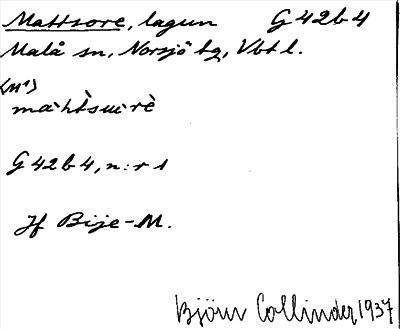 Mattsore, lagun G 42 b 4
Malå sn, Norsjö tg, Vbt l.
(M¹)
G 42 b 4, n:r 1
Jf Bije-M.
Björn Collinder 1937